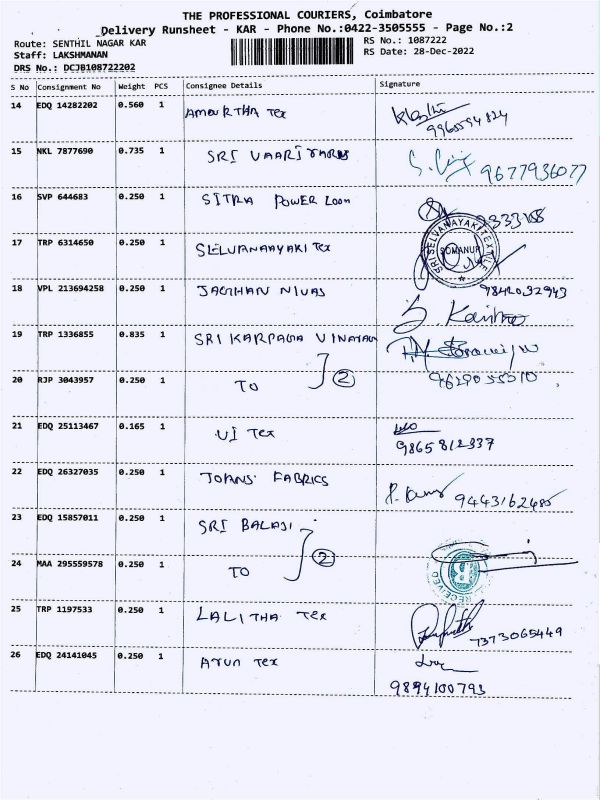 THE PROFESSIONAL COURIERS, Coimbatore
Delivery Runsheet - KAR - Phone No.:0422-3505555 - Page No.:2
Route: SENTHIL NAGAR KAR
RS No.: 1087222
Staff: LAKSHMANAN
RS Date: 28-Dec-2022
DRS No.: DCJB108722202
S No Consignment No Weight PCS Consignee Details Signature
14 EDQ 14282202 0.560 1 AMOURTHA Tex
15 NKL 7877690 0.735 1 SRI VAARI YARNS 9677936077
16 SVP 644683 0.250 1 SITRA POWER Loom
17 TRP 6314650 0.250 1 SELVANAAYAKI Tex
SRI SELVANAYAKI TEXTILE
SOMANUR
18 VPL 213694258 0.250 1 JAGTHAN NIVAS 9842032943
19 TRP 1336855 0.835 1 SRI KARPAGA VINAYAGA
20 RJP 3043957 0.250 1 TO 2
21 EDQ 25113467 0.165 1 VI Tex 9865812337
22 EDQ 26327035 0.250 1 FABRICS 9443162485
23 EDQ 15857011 0.250 1 SRI BALAJI
24 MAA 295559578 0.250 1 TO 2
RECEIVED
25 TRP 1197533 0.250 1 LALITHA Tex 7373065449
26 EDQ 24141045 0.250 1 Arun Tex
9894100793